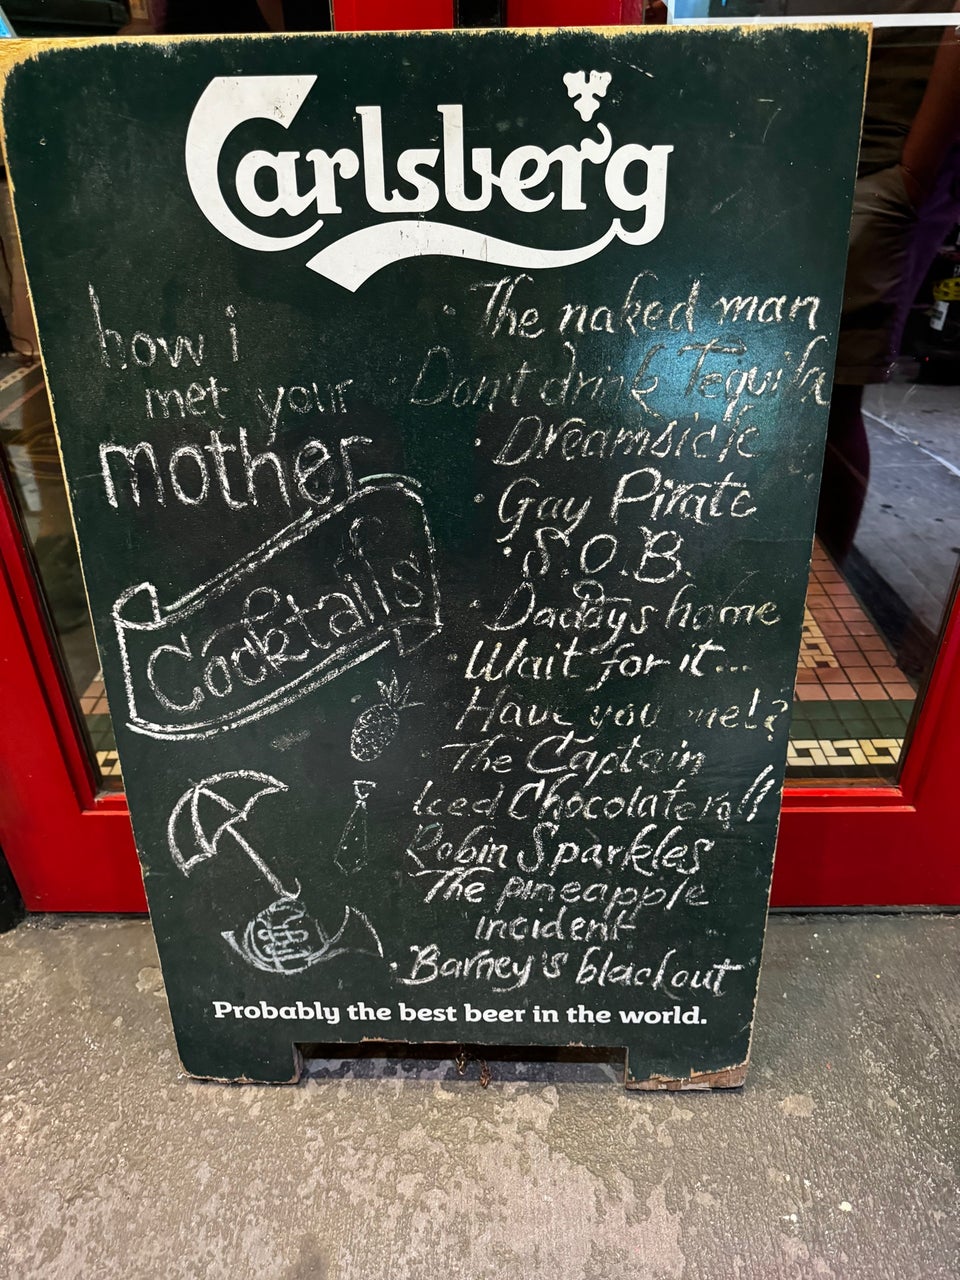 Carlsberg
how i
met your
mother
Cocktails
· The naked man
· Don't drink Tequila
· Dreamsicle
· Gay Pirate
· S.O.B
· Daddy's home
· Wait for it...
· Have you met?
· The Captain
Iced Chocolate
Robin Sparkles
The pineapple
incident
· Barney's blackout
Probably the best beer in the world.